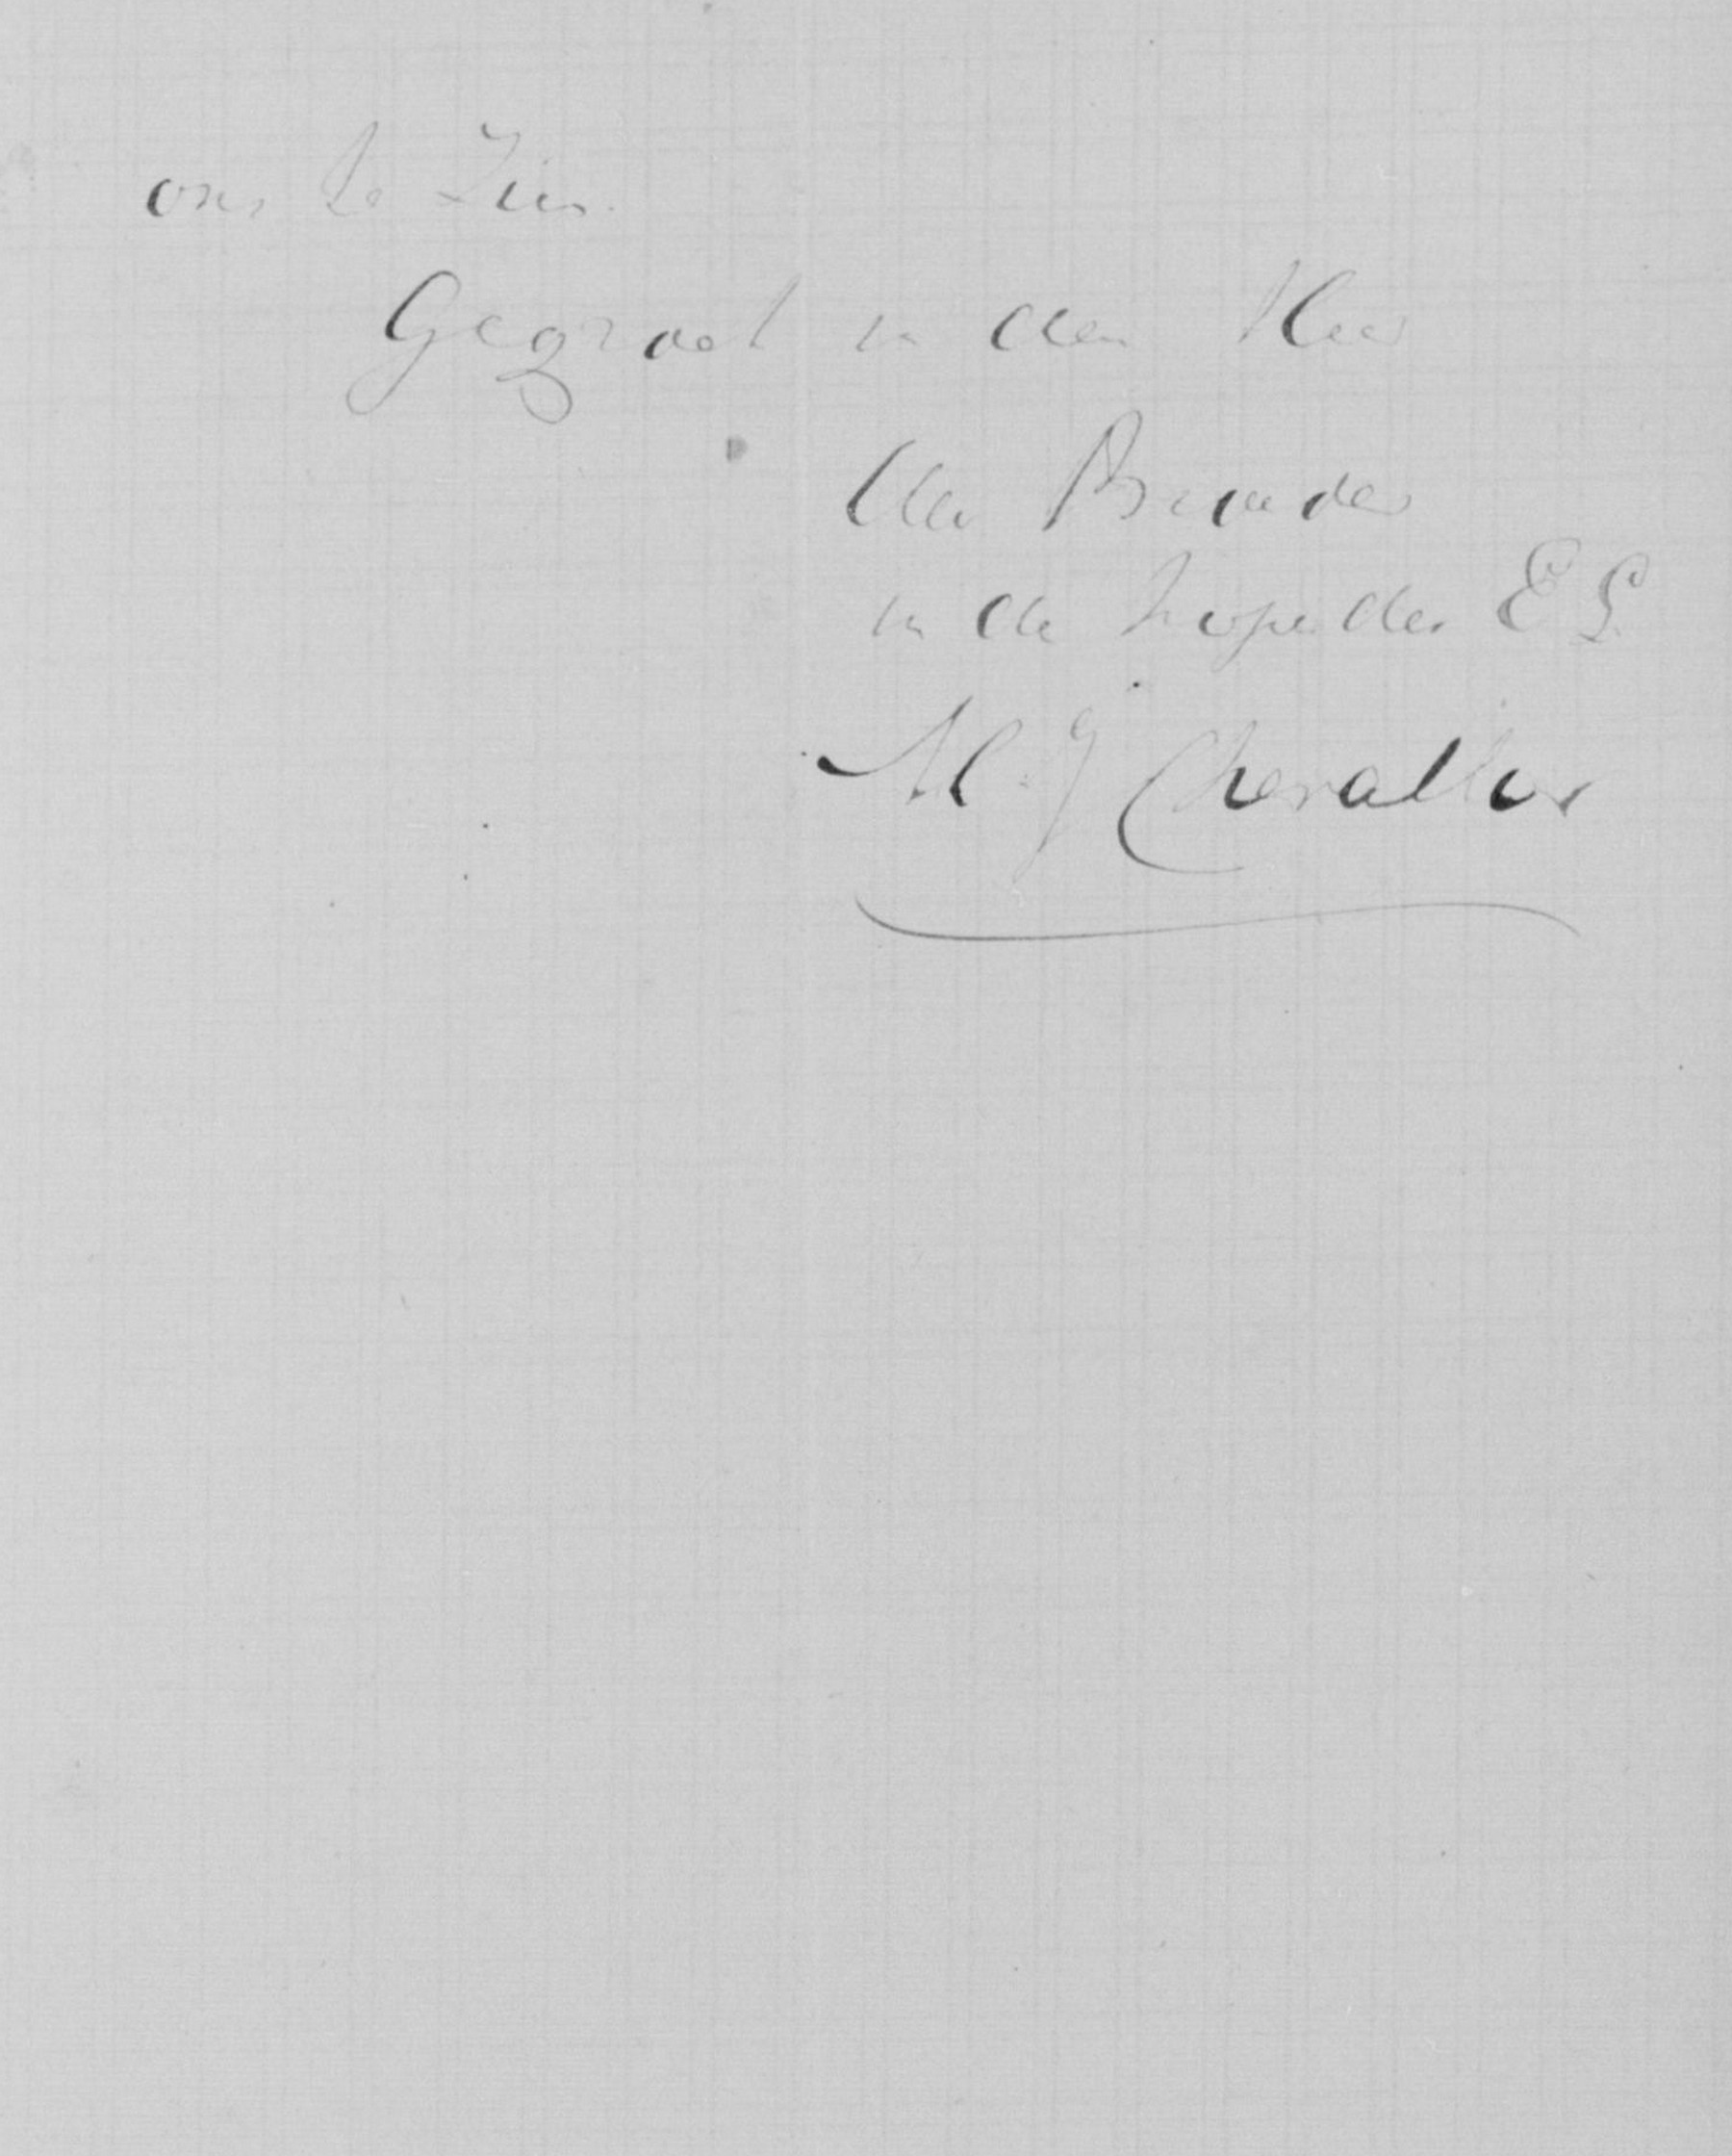 ons te zien.
Gegroet in den Heer
Uw Broeder
in de hope des E L
M. J Chevallier